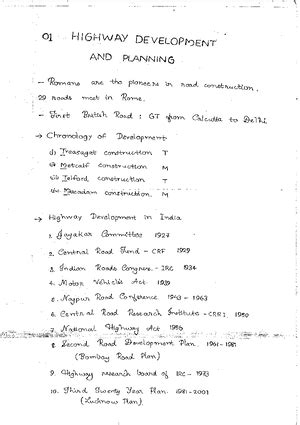 01 HIGHWAY DEVELOPMENT
AND PLANNING
- Romans are the pioneers in road construction.
29 roads meet in Rome.
- First British Road : GT from Calcutta to Delhi
→ Chronology of Development
i) Treasaget construction T
ii) Metcalf construction M
iii) Telford construction T
iv) Macadam construction. M
→ Highway Development in India
1. Jayakar Committee 1927
2. Central Road Fund - CRF 1929
3. Indian Roads Congress - IRC 1934
4. Motor Vehicles Act. 1939
5. Nagpur Road Conference 1943 - 1963
6. Central Road Research Institute - CRRI 1950
7. National Highway Act 1956
8. Second Road Development Plan 1961-1981
(Bombay Road Plan)
9. Highway research board of IRC - 1973
10. Third Twenty Year Plan 1981-2001
(Lucknow Plan)